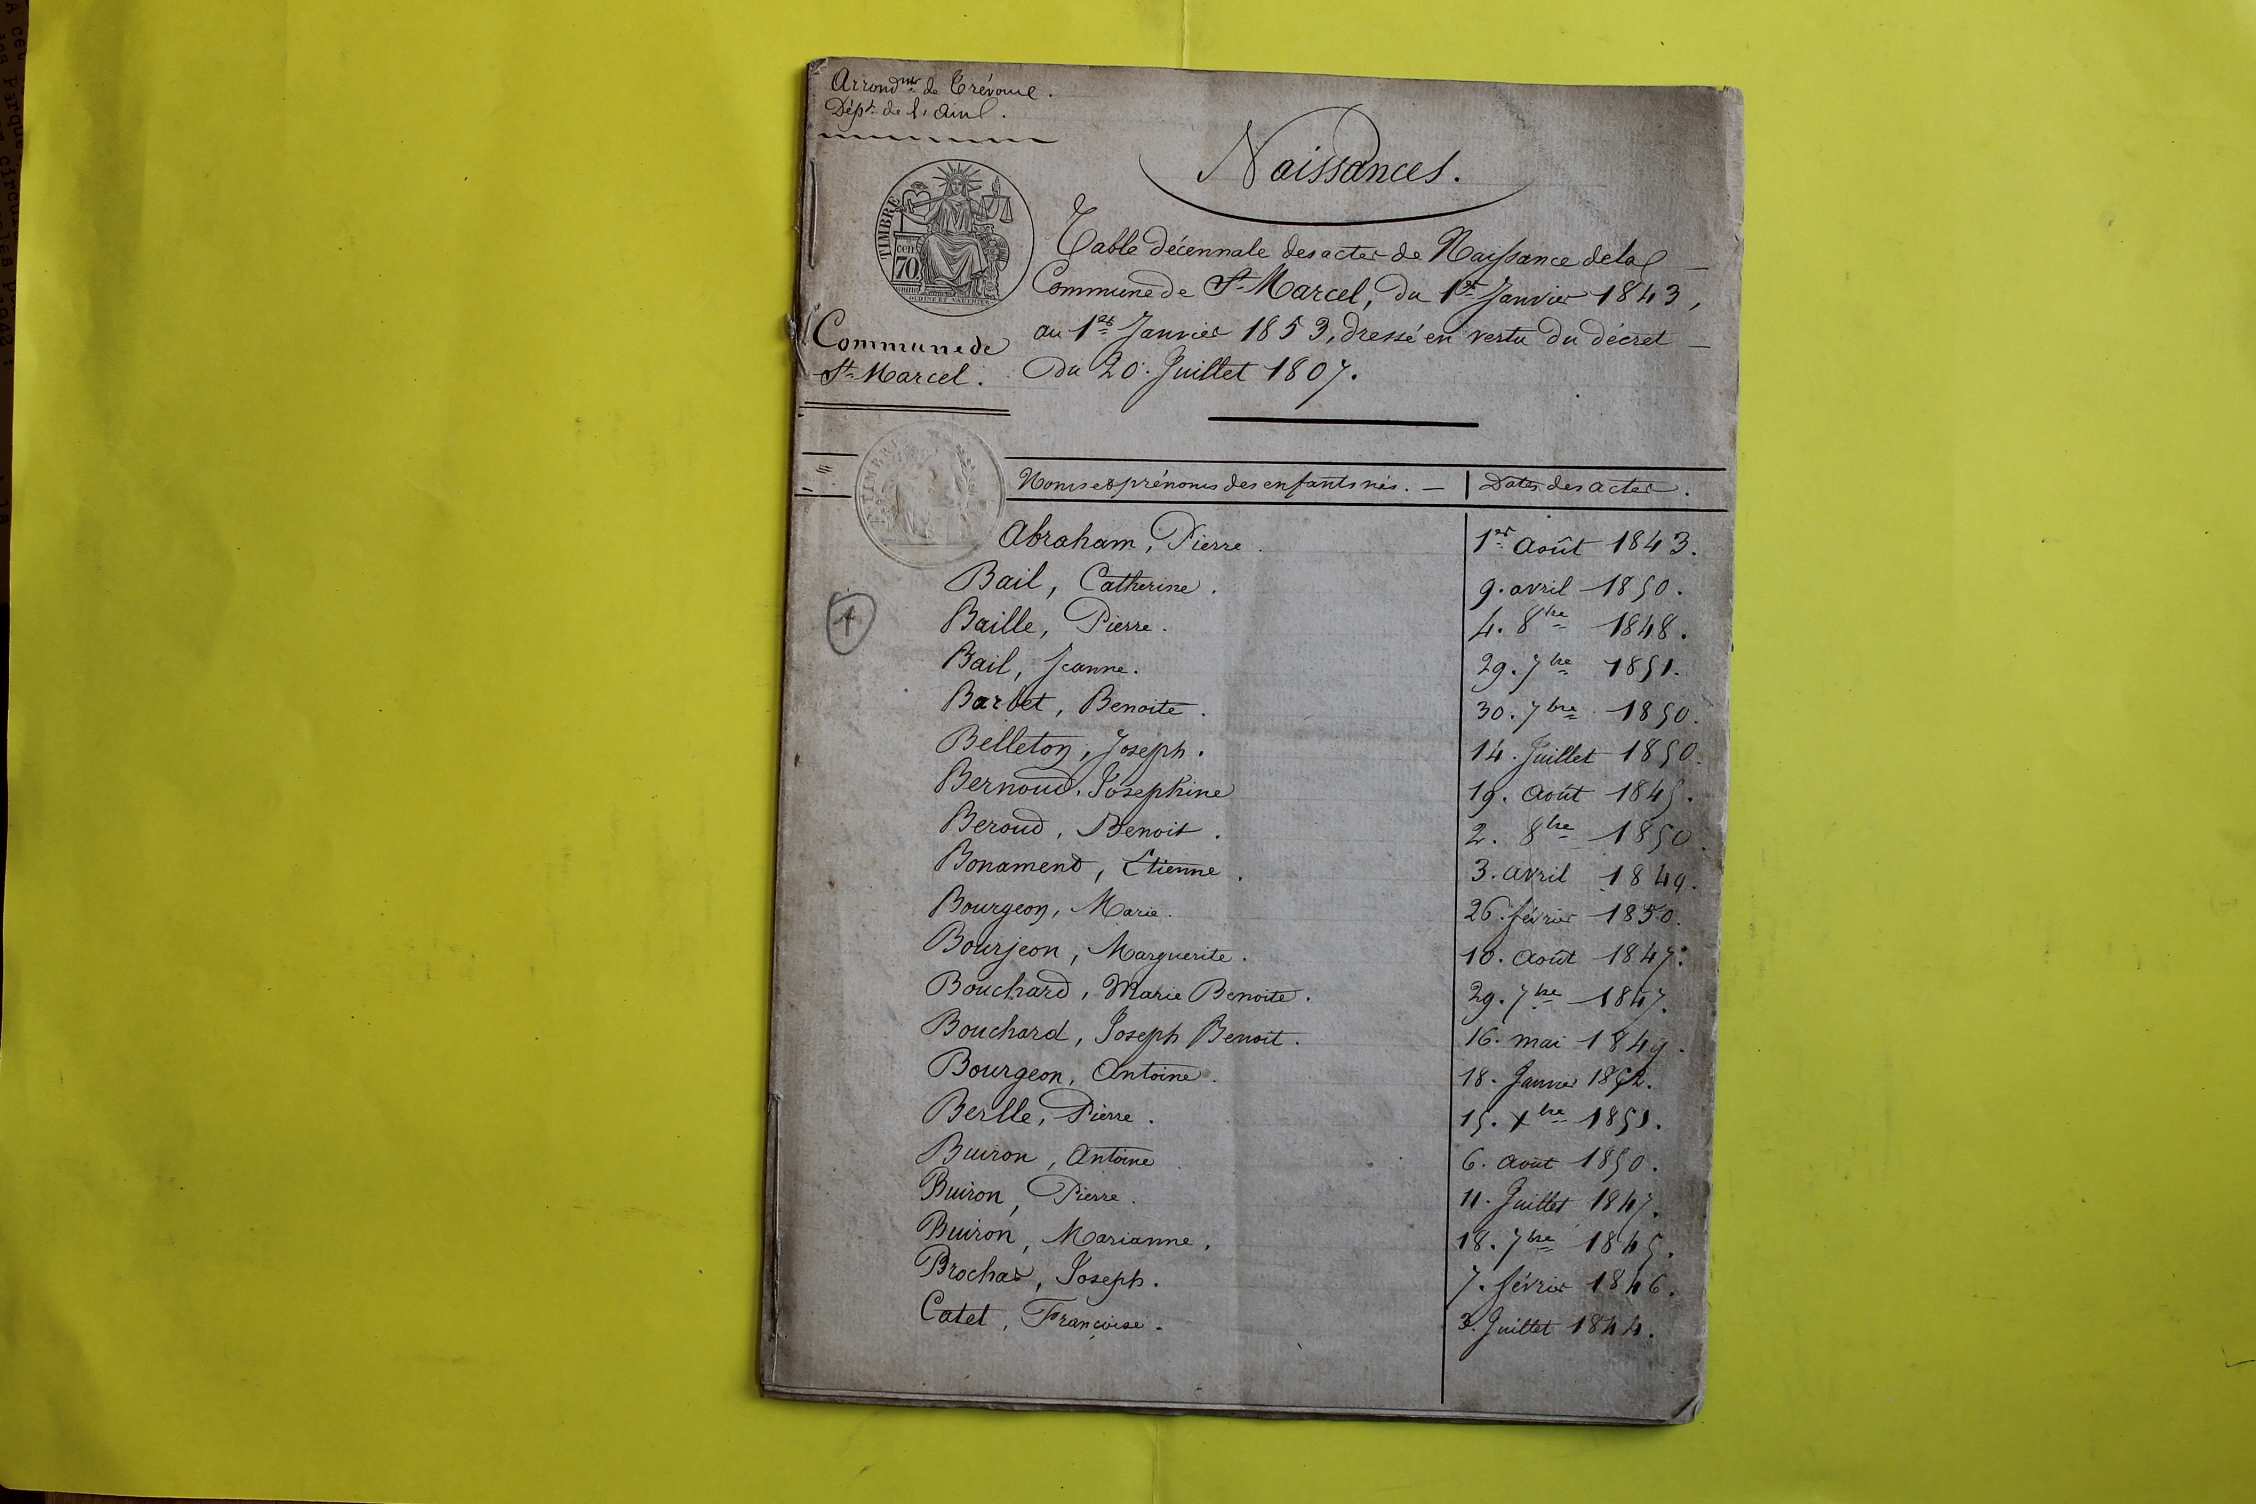 Arrond.nt de Trévoux.
Dépt. de l'Ain.
Naissances.
TIMBRE
cen
70
Table décennale des actes de Naissance de la
Commune de St. Marcel, du 1er Janvier 1843,
au 1er Janvier 1853, dressé en vertu du décret
du 20. Juillet 1807.
Commune de
St. Marcel.
Noms et prénoms des enfants nés. — Dates des actes.
Abraham, Pierre. 1er août 1843.
Bail, Catherine. 9. avril 1850.
1
Baille, Pierre. 4. 8bre 1848.
Bail, Jeanne. 29. 7bre 1851.
Barbet, Benoite. 30. 7bre 1850.
Belleton, Joseph. 14. Juillet 1850.
Bernoud, Josephine 19. août 1845.
Beroud, Benoit. 2. 8bre 1850.
Bonament, Etienne. 3. avril 1849.
Bourgeon, Marie. 26. février 1850.
Bourjeon, Marguerite. 10. août 1847.
Bouchard, Marie Benoite. 29. 7bre 1847.
Bouchard, Joseph Benoit. 16. mai 1849.
Bourgeon, Antoine. 18. Janvier 1852.
Berlle, Pierre. 15. Xbre 1851.
Buiron, Antoine 6. août 1850.
Buiron, Pierre. 11. Juillet 1847.
Buiron, Marianne. 18. 7bre 1845.
Joseph. 7. février 1846.
Catet, Françoise. 3. Juillet 1844.